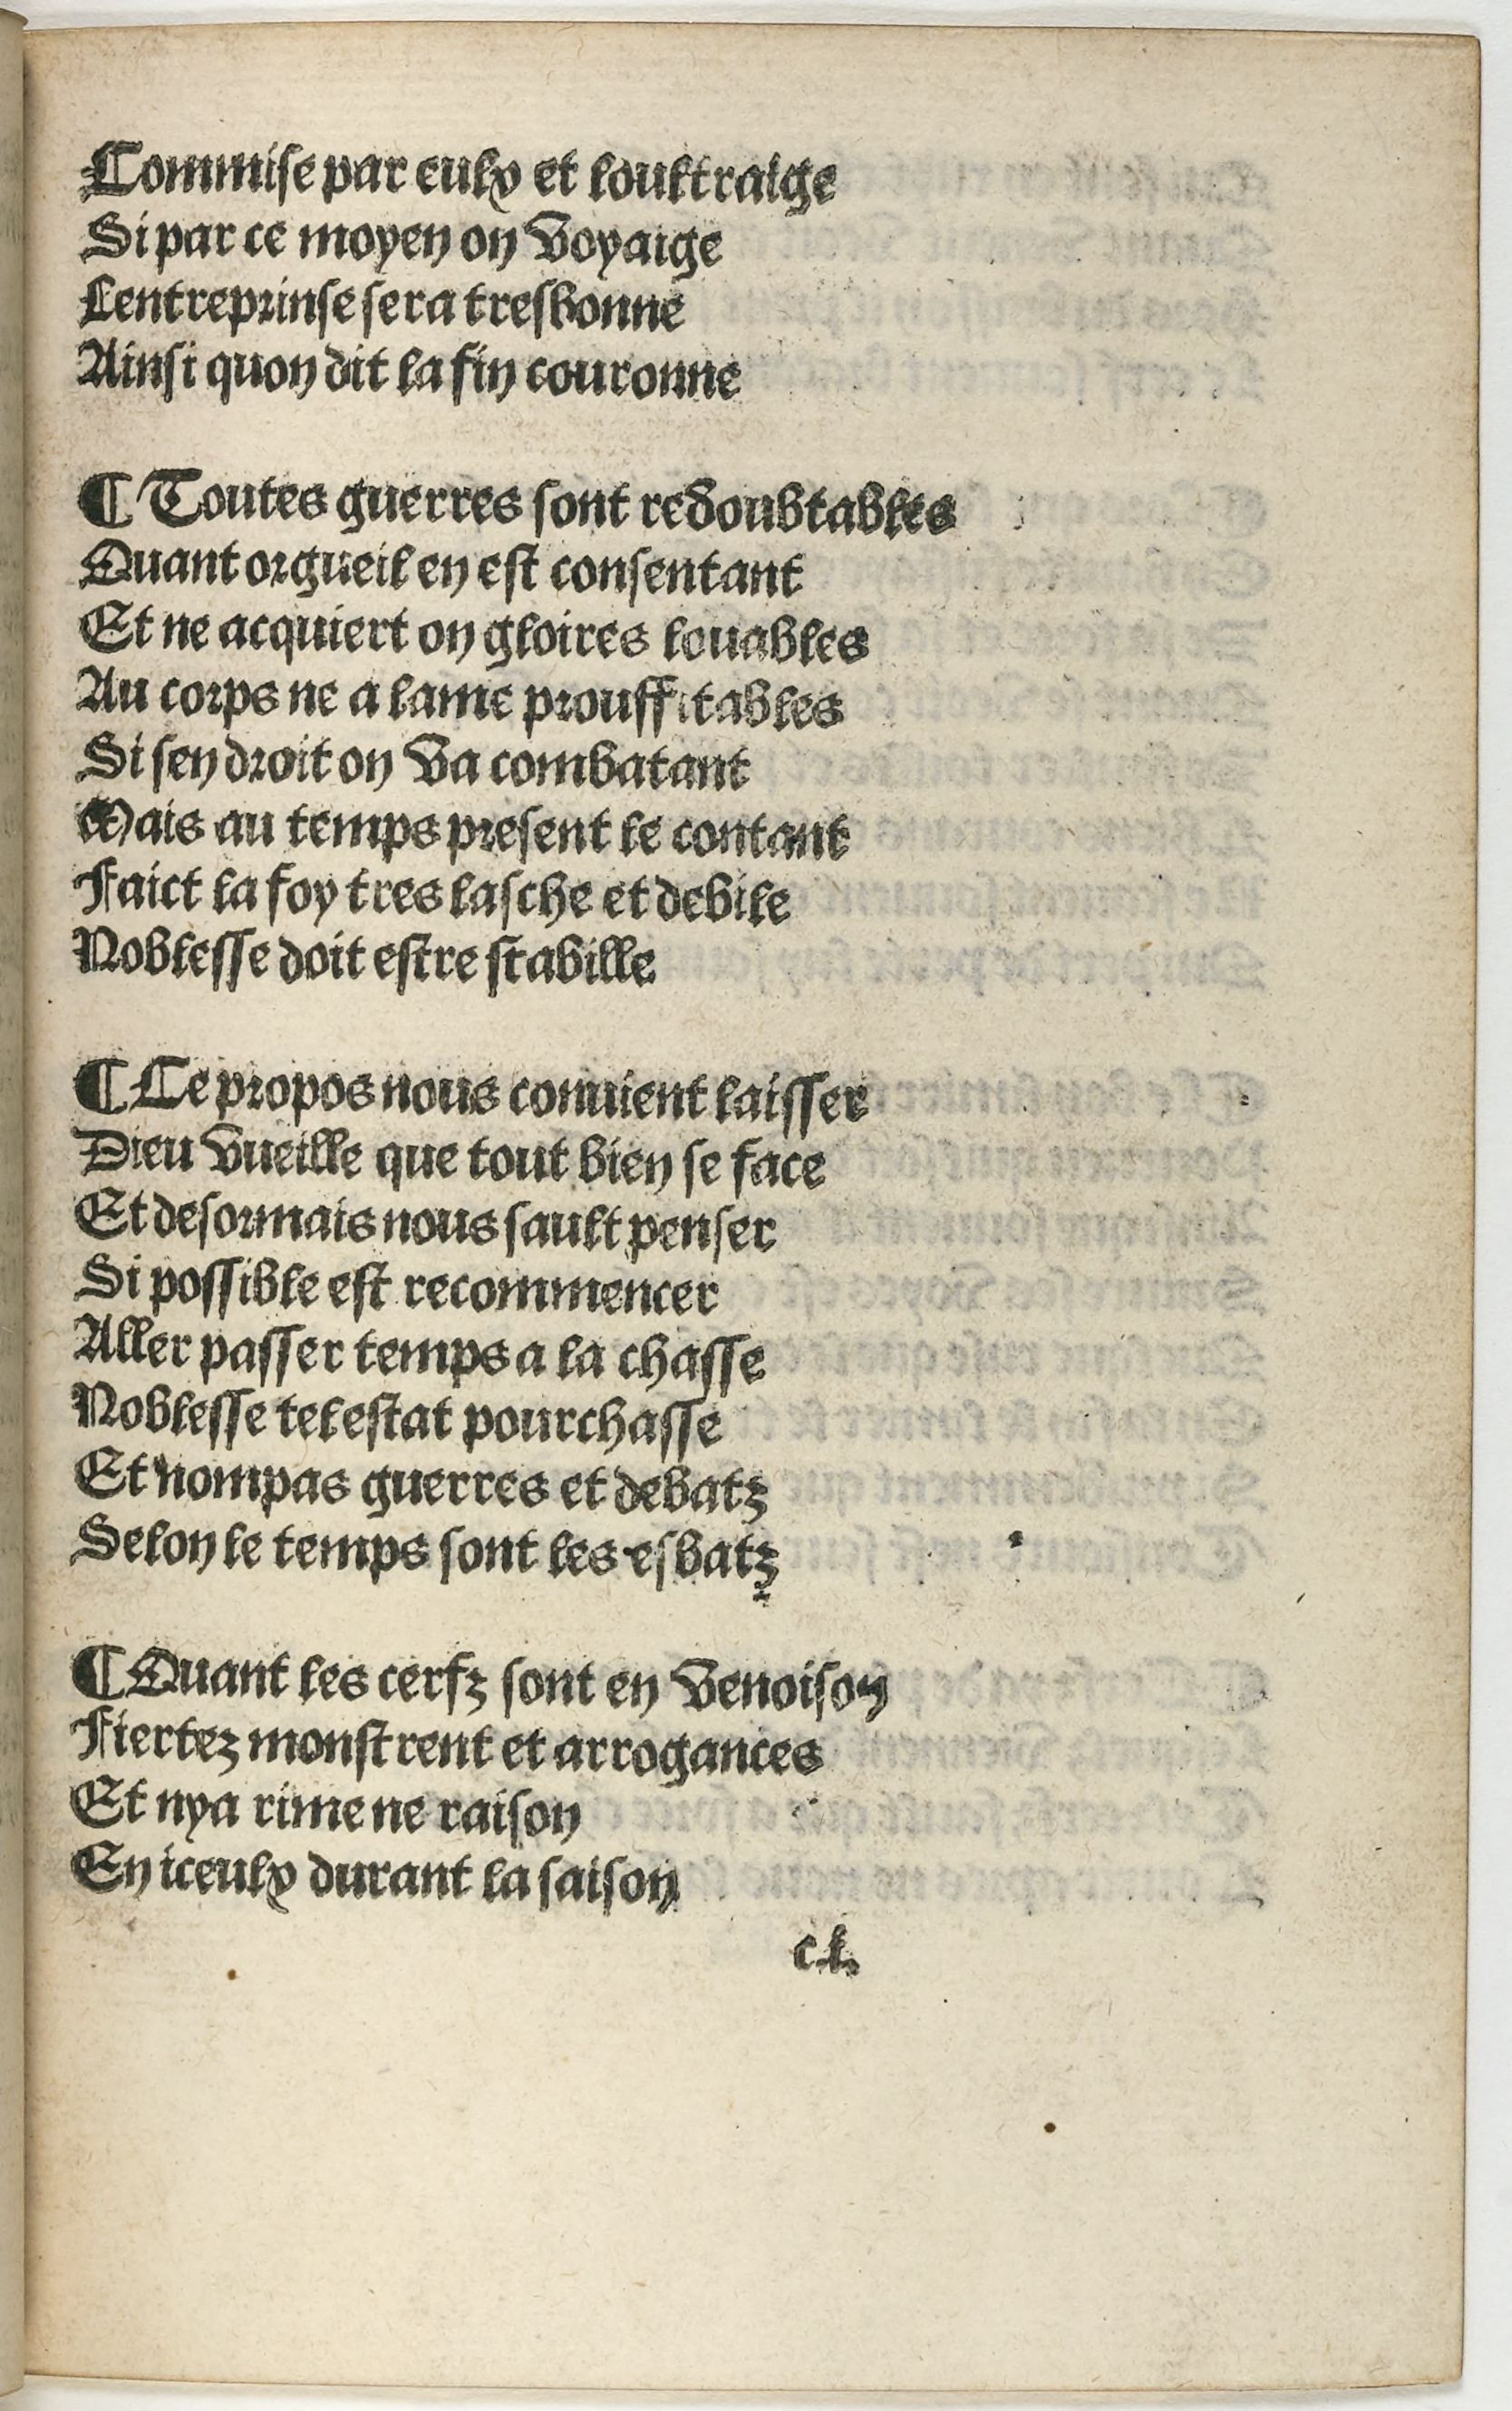 Commise par eulx et loultraige
Si par ce moyen on voyaige
Lentreprinse sera tresbonne
Ainsi quon dit la fin couronne
¶ Toutes guerres sont redoubtables
Quant orgueil en est consentant
Et ne acquiert on gloires louables
Au corps ne a lame prouffitables
Si sen droit on va combatant
Mais au temps present le contant
Faict la foy tres lasche et debile
Noblesse doit estre stabille
¶ Ce propos nous conuient laisser
Dieu vueille que tout bien se face
Et desormais nous fault penser
Si possible est recommencer
Aller passer temps a la chasse
Noblesse tel estat pourchasse
Et nompas guerres et debatz
Selon le temps sont les esbatz
¶ Quant les cerfz sont en venoison
Fiertez monstrent et arrogances
Et nya rime ne raison
En iceulx durant la saison
c.i.